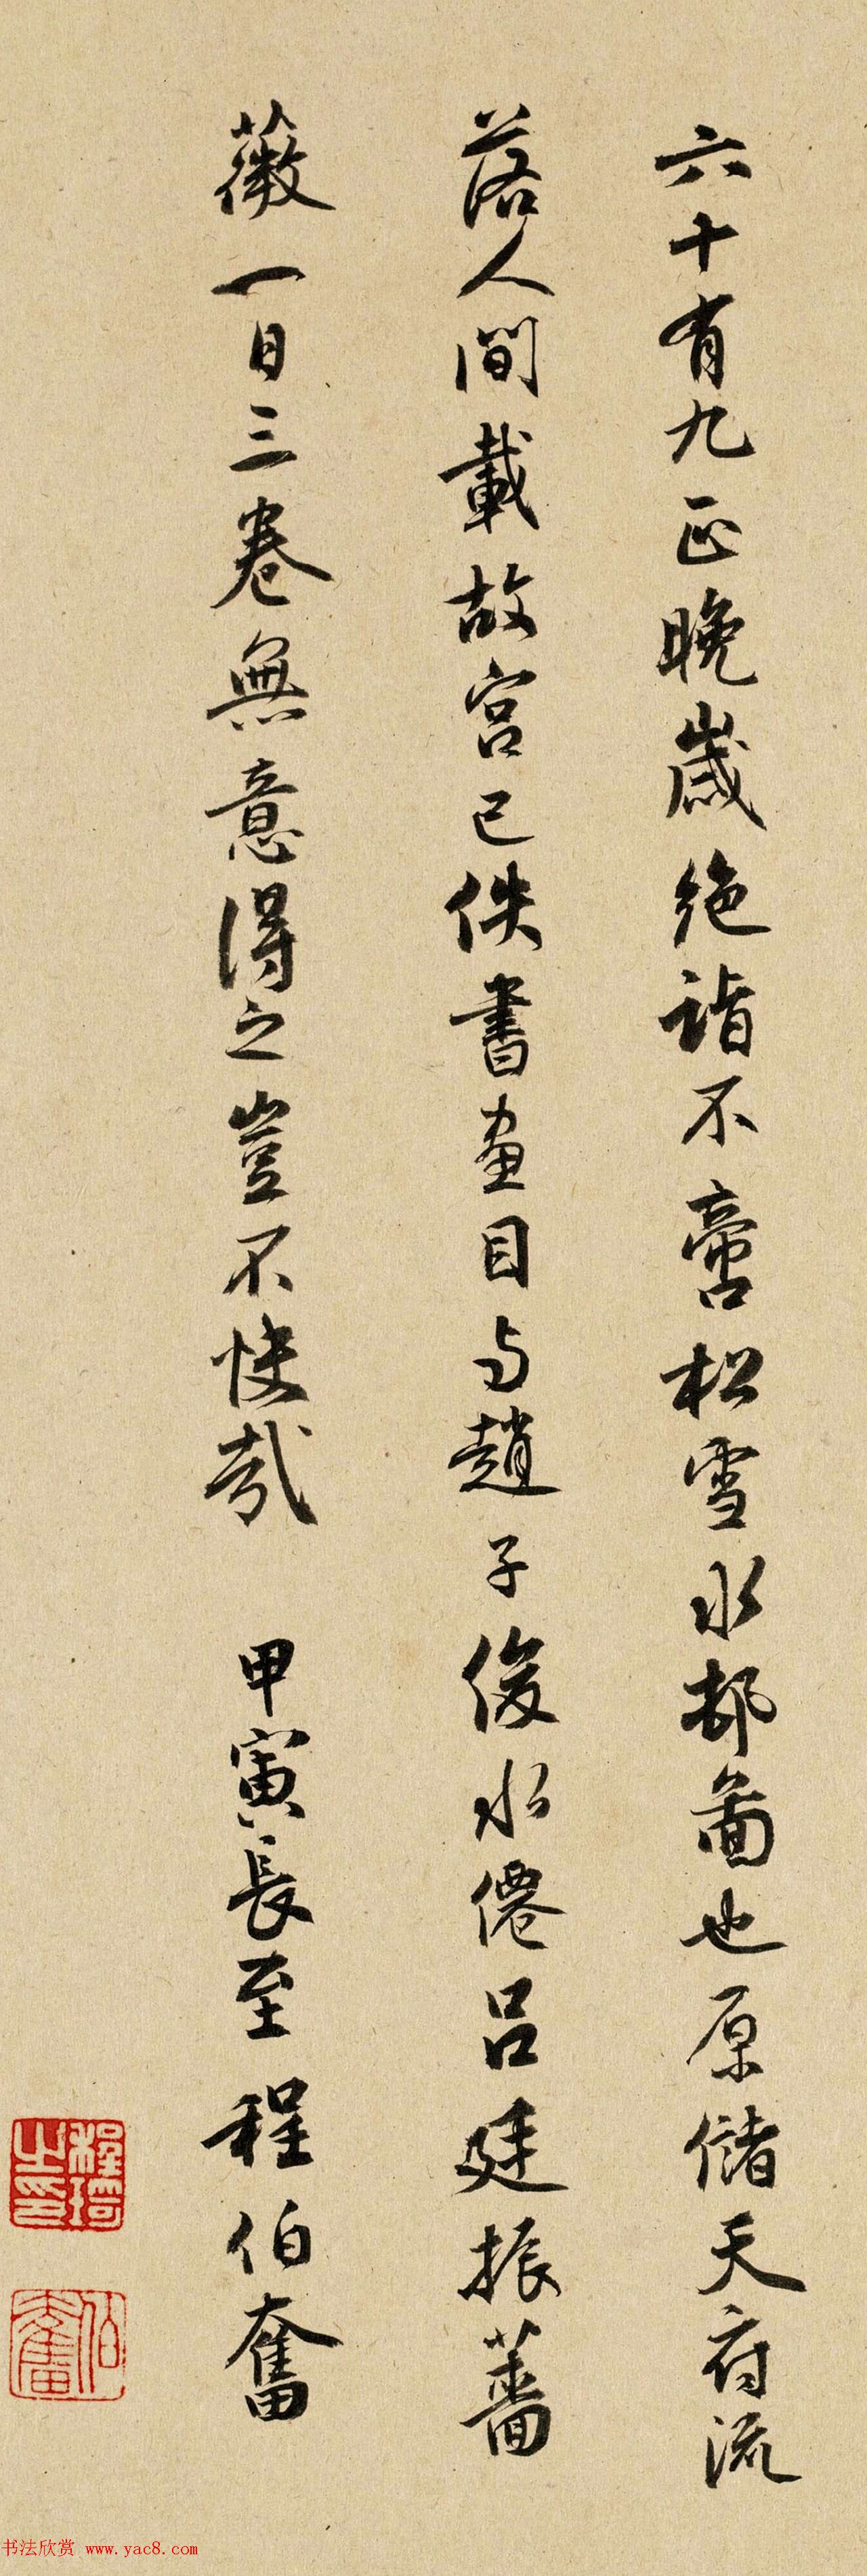 六十有九正晚歲絶詣不啻松雪水邨啚也原儲天府流
落人間載故宮已佚書畫目与趙子俊水僊呂廷振薔
薇一日三卷無意得之豈不快哉 甲寅長至 程伯奮
程琦之印
伯奮
书法欣赏 www.yac8.com